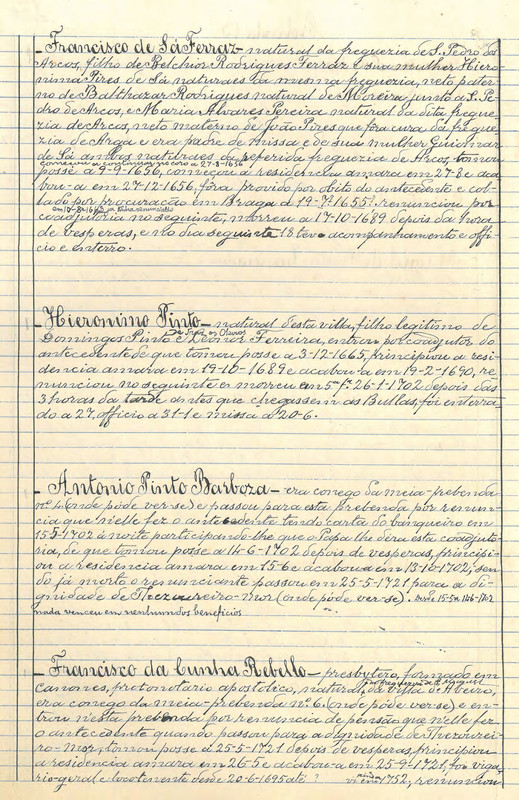 _ Francisco de Sá Ferraz _ natural da freguezia de S. Pedro dos
Arcos, filho de Belchior Rodrigues Ferraz e sua mulher Hiero-
nima Pires de Sá naturaes da mesma freguezia, neto pater-
no de Balthazar Rodrigues natural de Moreira junto a S. Pe-
dro de Arcos, e Maria Alvares Pereira natural da dita fregue-
zia de Arcos, neto materno de João Pires que fora cura da fregue-
zia de Arga e era padre de missa e de sua mulher Guiomar
de Sá ambos naturaes da referida freguezia de Arcos, tomou
posse a 9-9-1656, começou a residencia amara em 27-8 e aca-
bou-a em 27-12-1656, fôra provido por obito do antecedente e col-
lado por procuração em Braga a 19-7-1655. renunciou por
coadjutoria no seguinte, morreu a 17-10-1689 depois da hora
de vesperas, e no dia seguinte 18 teve acompanhamento e offi-
cio e enterro.
_ Hieronimo Pinto _ natural d'esta villa, filho legitimo de
Domingos Pinto e Leonor Ferreira, entrou por coadjutor do
antecedente de que tomou posse a 3-12-1665, principiou a resi-
dencia amara em 19-10-1689 e acabou-a em 19-2-1690, re-
nunciou no seguinte e morreu em 5ª fª 26-1-1702 depois das
3 horas da tarde antes que chegassem as Bullas, foi enterra-
do a 27, officio a 31-1 e missa a 20-6.
_ Antonio Pinto Barboza _ era conego da meia-prebenda
nº 4 (onde póde ver-se) e passou para esta prebenda por renun-
cia que n'elle fez o antecedente tendo carta do banqueiro em
15-5-1702 á noite participando-lhe que o Papa lhe dera esta coadjuto-
ria, de que tomou posse a 14-6-1702 depois de vesperas, principi-
ou a residencia amara em 15-6 e acabou-a em 13-10-1702, sen-
do já morto o renunciante passou em 25-5-1721 para a di-
gnidade de Thezoureiro-Mor (onde póde ver-se). 15-5 a 14-6-1702
nada venceu em nenhum dos beneficios
_ Francisco da Cunha Rebello _ presbytero, formado em
canones, protonotario apostolico, natural da villa de Aveiro,
era conego da meia-prebenda nº 6 (onde póde ver-se) e en-
trou nesta prebenda por renuncia de pensão que nelle fez
o antecedente quando passou para a dignidade de Thezourei-
ro-mor, tomou posse a 25-5-1721 depois de vesperas, principiou
a residencia amara em 26-5 e acabou-a em 25-9-1721, foi viga-
rio-geral e locotenente desde 20-6-1695 até ? 1752, renunciou